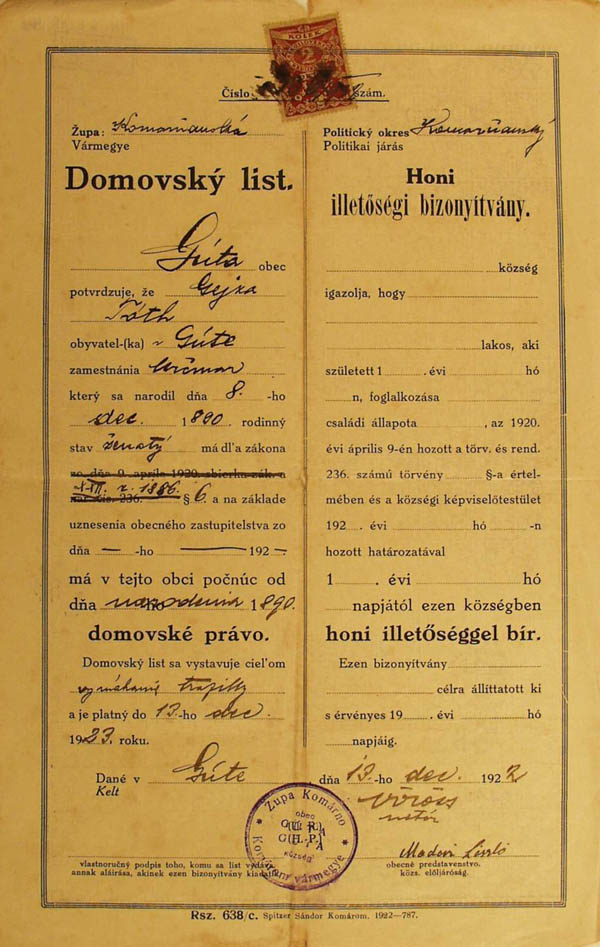 KOLEK
2
Číslo szám.
Župa: Komárňanská
Vármegye
Domovský list.
Gúta obec
potvrdzuje, že Gejza
Tóth
obyvateľ-(ka) v Gúte
zamestnánia
který sa narodil dňa 8. -ho
dec. 1890. rodinný
stav ženatý má dľa zákona
zo dňa 9. apríla 1920. sbierka zák. a
XXII. z. 1886.
nar. čís. 236. § 6. a na základe
uznesenia obecného zastupitelstva zo
dňa — -ho — 192 -
má v tejto obci počnúc od
dňa narodenia 1890.
domovské právo.
Domovský list sa vystavuje cieľom
trafiky
a je platný do 13-ho dec.
1923. roku.
Politický okres Komárňanský
Politikai járás
Honi
illetőségi bizonyítvány.
község
igazolja, hogy
lakos, aki
született 1 . évi hó
n, foglalkozása
családi állapota , az 1920.
évi április 9-én hozott a törv. és rend.
236. számú törvény §-a értel-
mében és a községi képviselőtestület
192 . évi hó -n
hozott határozatával
1 . évi hó
napjától ezen községben
honi illetőséggel bír.
Ezen bizonyítvány
célra állíttatott ki
s érvényes 19 . évi hó
napjáig.
Dané v Gúte , dňa 13-ho dec. 1922
Kelt
Vörös
notár
Župa Komárno
obec
község
Komáromi vármegye
Madari László
vlastnoručný podpis toho, komu sa list vydáva
annak aláírása, akinek ezen bizonyítvány kiadatott
obecné predstavenstvo.
közs. elöljáróság.
Rsz. 638/c. Spitzer Sándor Komárom. 1922—787.